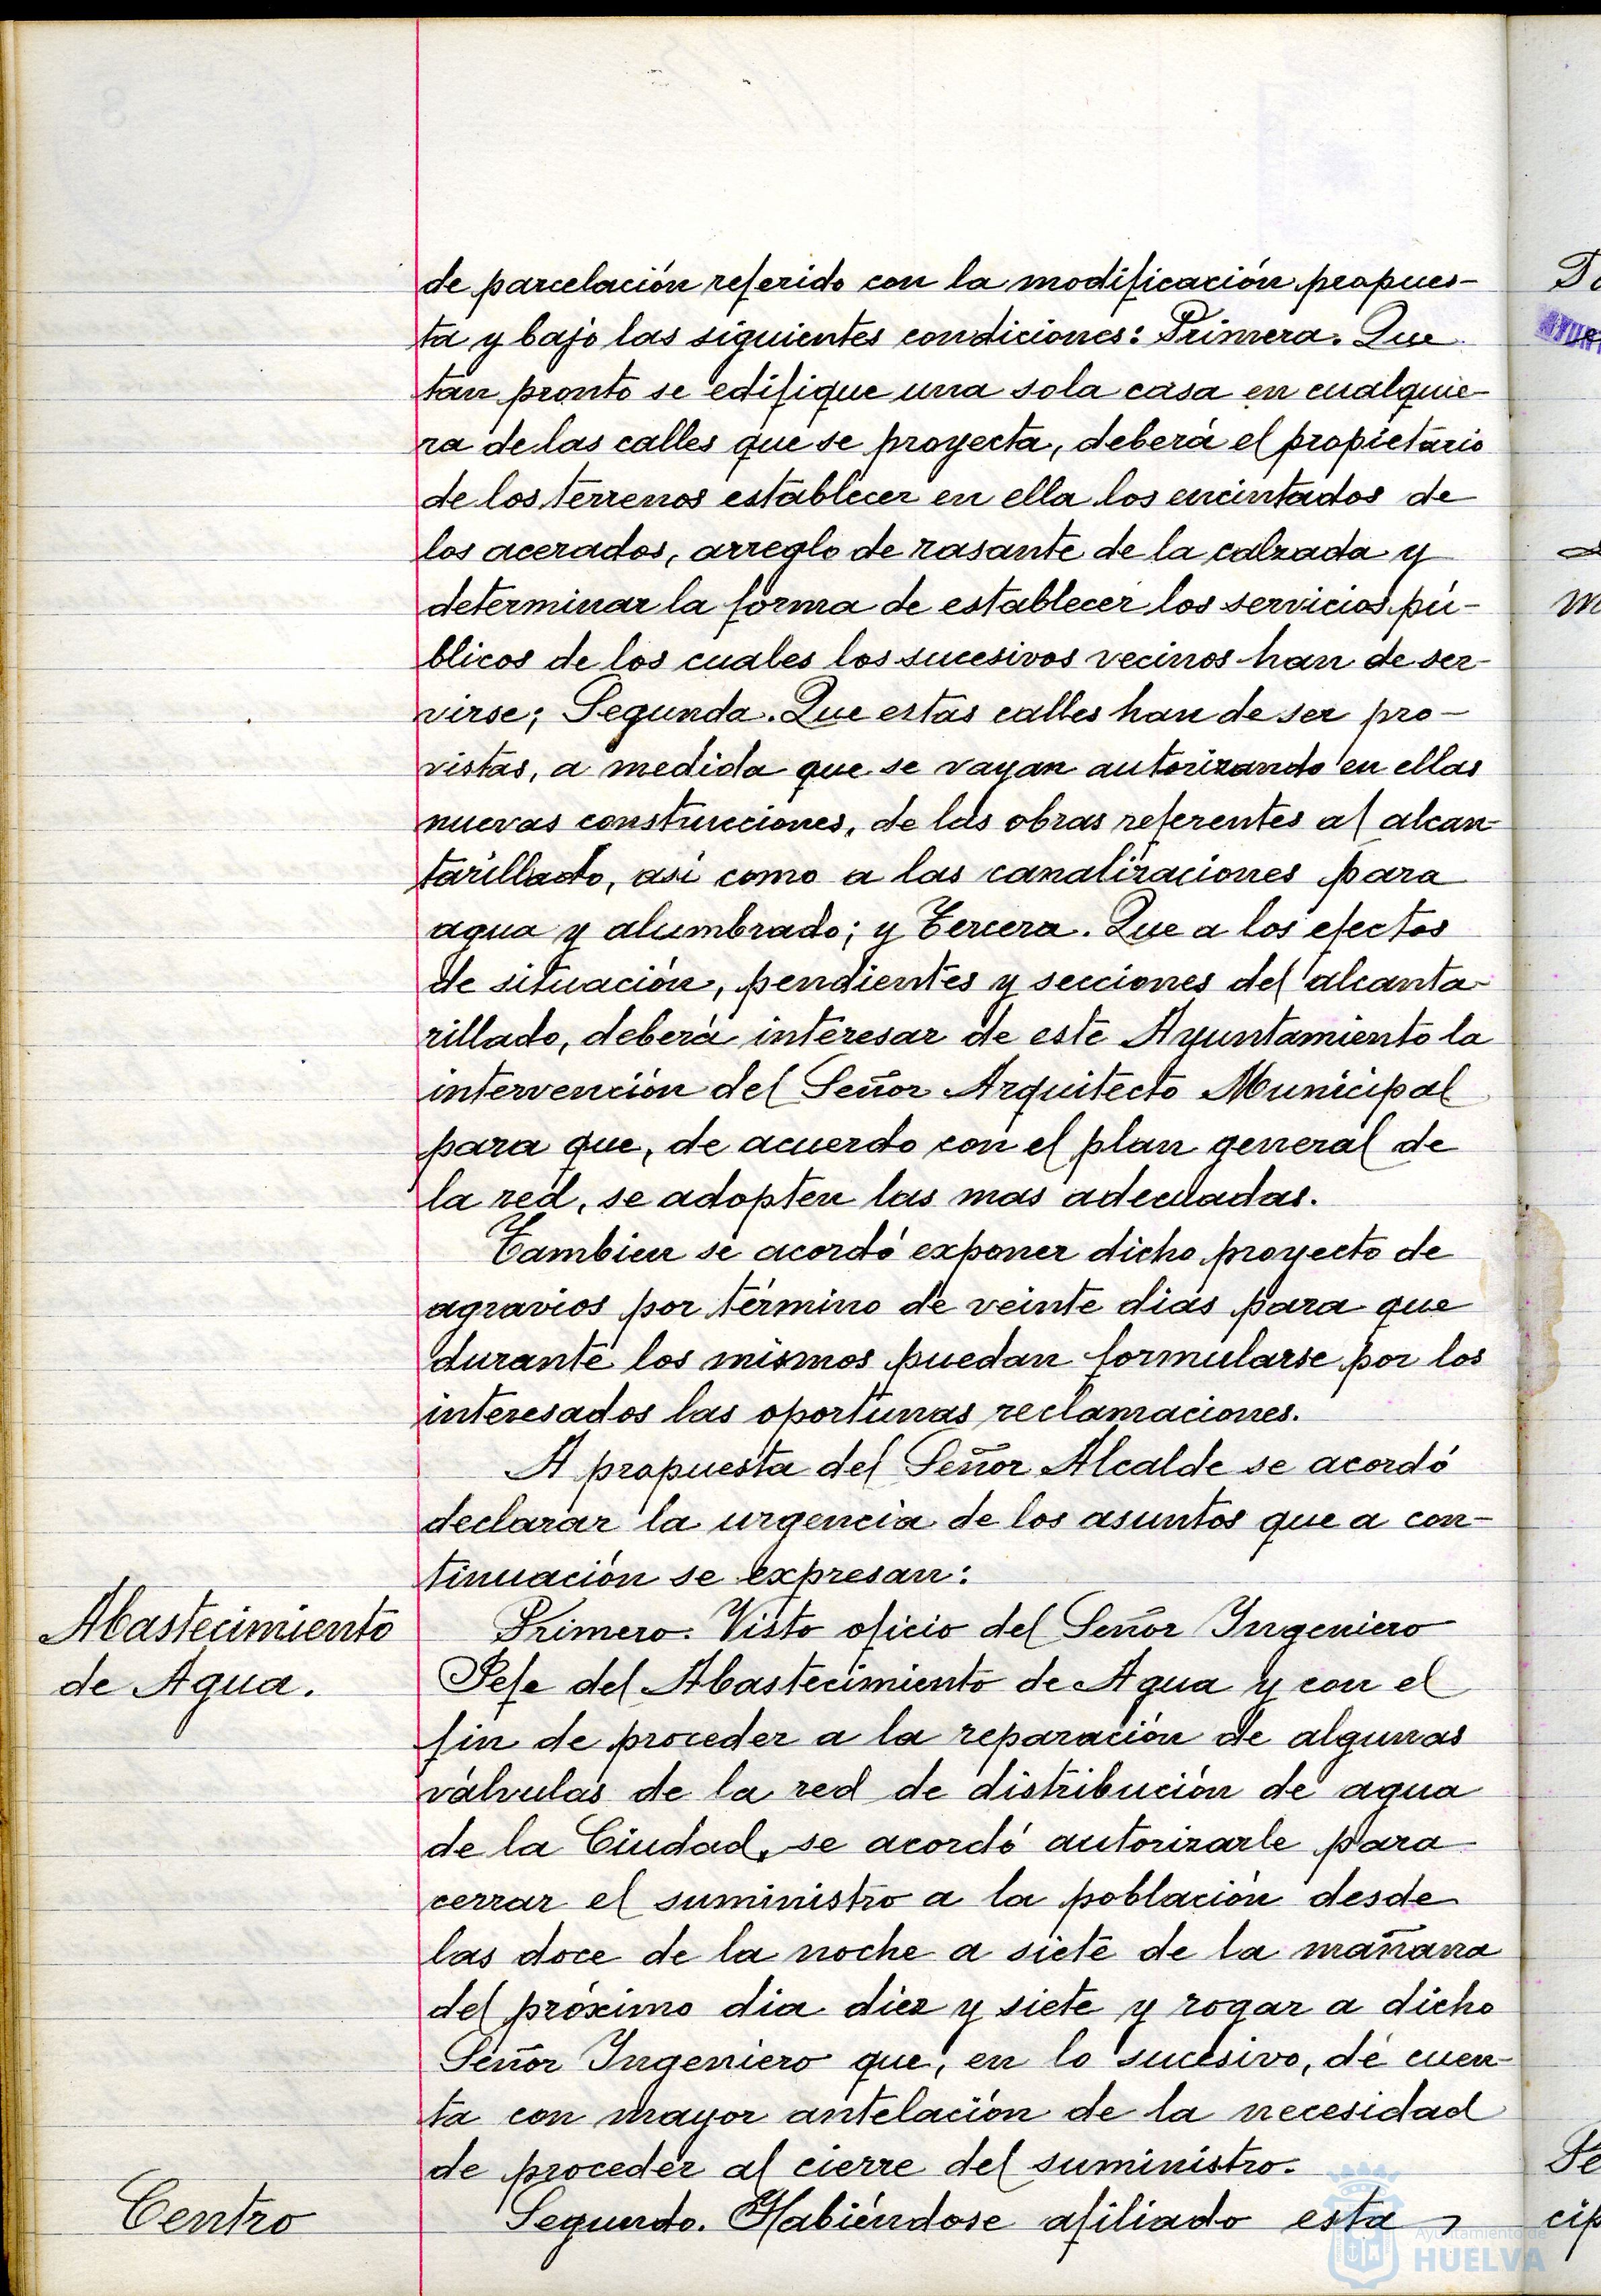 de parcelación referido con la modificación propues-
ta y bajo las siguientes condiciones: Primera. Que
tan pronto se edifique una sola casa en cualquie-
ra de las calles que se proyecta, deberá el propietario
de los terrenos establecer en ella los encintados de
los acerados, arreglo de rasante de la calzada y
determinar la forma de establecer los servicios pú-
blicos de los cuales los sucesivos vecinos han de ser-
virse; Segunda. Que estas calles han de ser pro-
vistas, a medida que se vayan autorizando en ellas
nuevas construcciones, de las obras referentes al alcan-
tarillado, asi como a las canalizaciones para
agua y alumbrado; y Tercera. Que a los efectos
de situación, pendientes y secciones del alcanta-
rillado, deberá interesar de este Ayuntamiento la
intervención del Señor Arquitecto Municipal
para que, de acuerdo con el plan general de
la red, se adopten las mas adecuadas.
Tambien se acordó exponer dicho proyecto de
agravios por término de veinte dias para que
durante los mismos puedan formularse por los
interesados las oportunas reclamaciones.
A propuesta del Señor Alcalde se acordó
declarar la urgencia de los asuntos que a con-
tinuación se expresan:
Abastecimiento
de Agua.
Primero. Visto oficio del Señor Ingeniero
Jefe del Abastecimiento de Agua y con el
fin de proceder a la reparación de algunas
válvulas de la red de distribución de agua
de la Ciudad, se acordó autorizarle para
cerrar el suministro a la población desde
las doce de la noche a siete de la mañana
del próximo dia diez y siete y rogar a dicho
Señor Ingeniero que, en lo sucesivo, dé cuen-
ta con mayor antelación de la necesidad
de proceder al cierre del suministro.
Centro
Segundo. Habiéndose afiliado esta
Ayuntamiento de
HUELVA